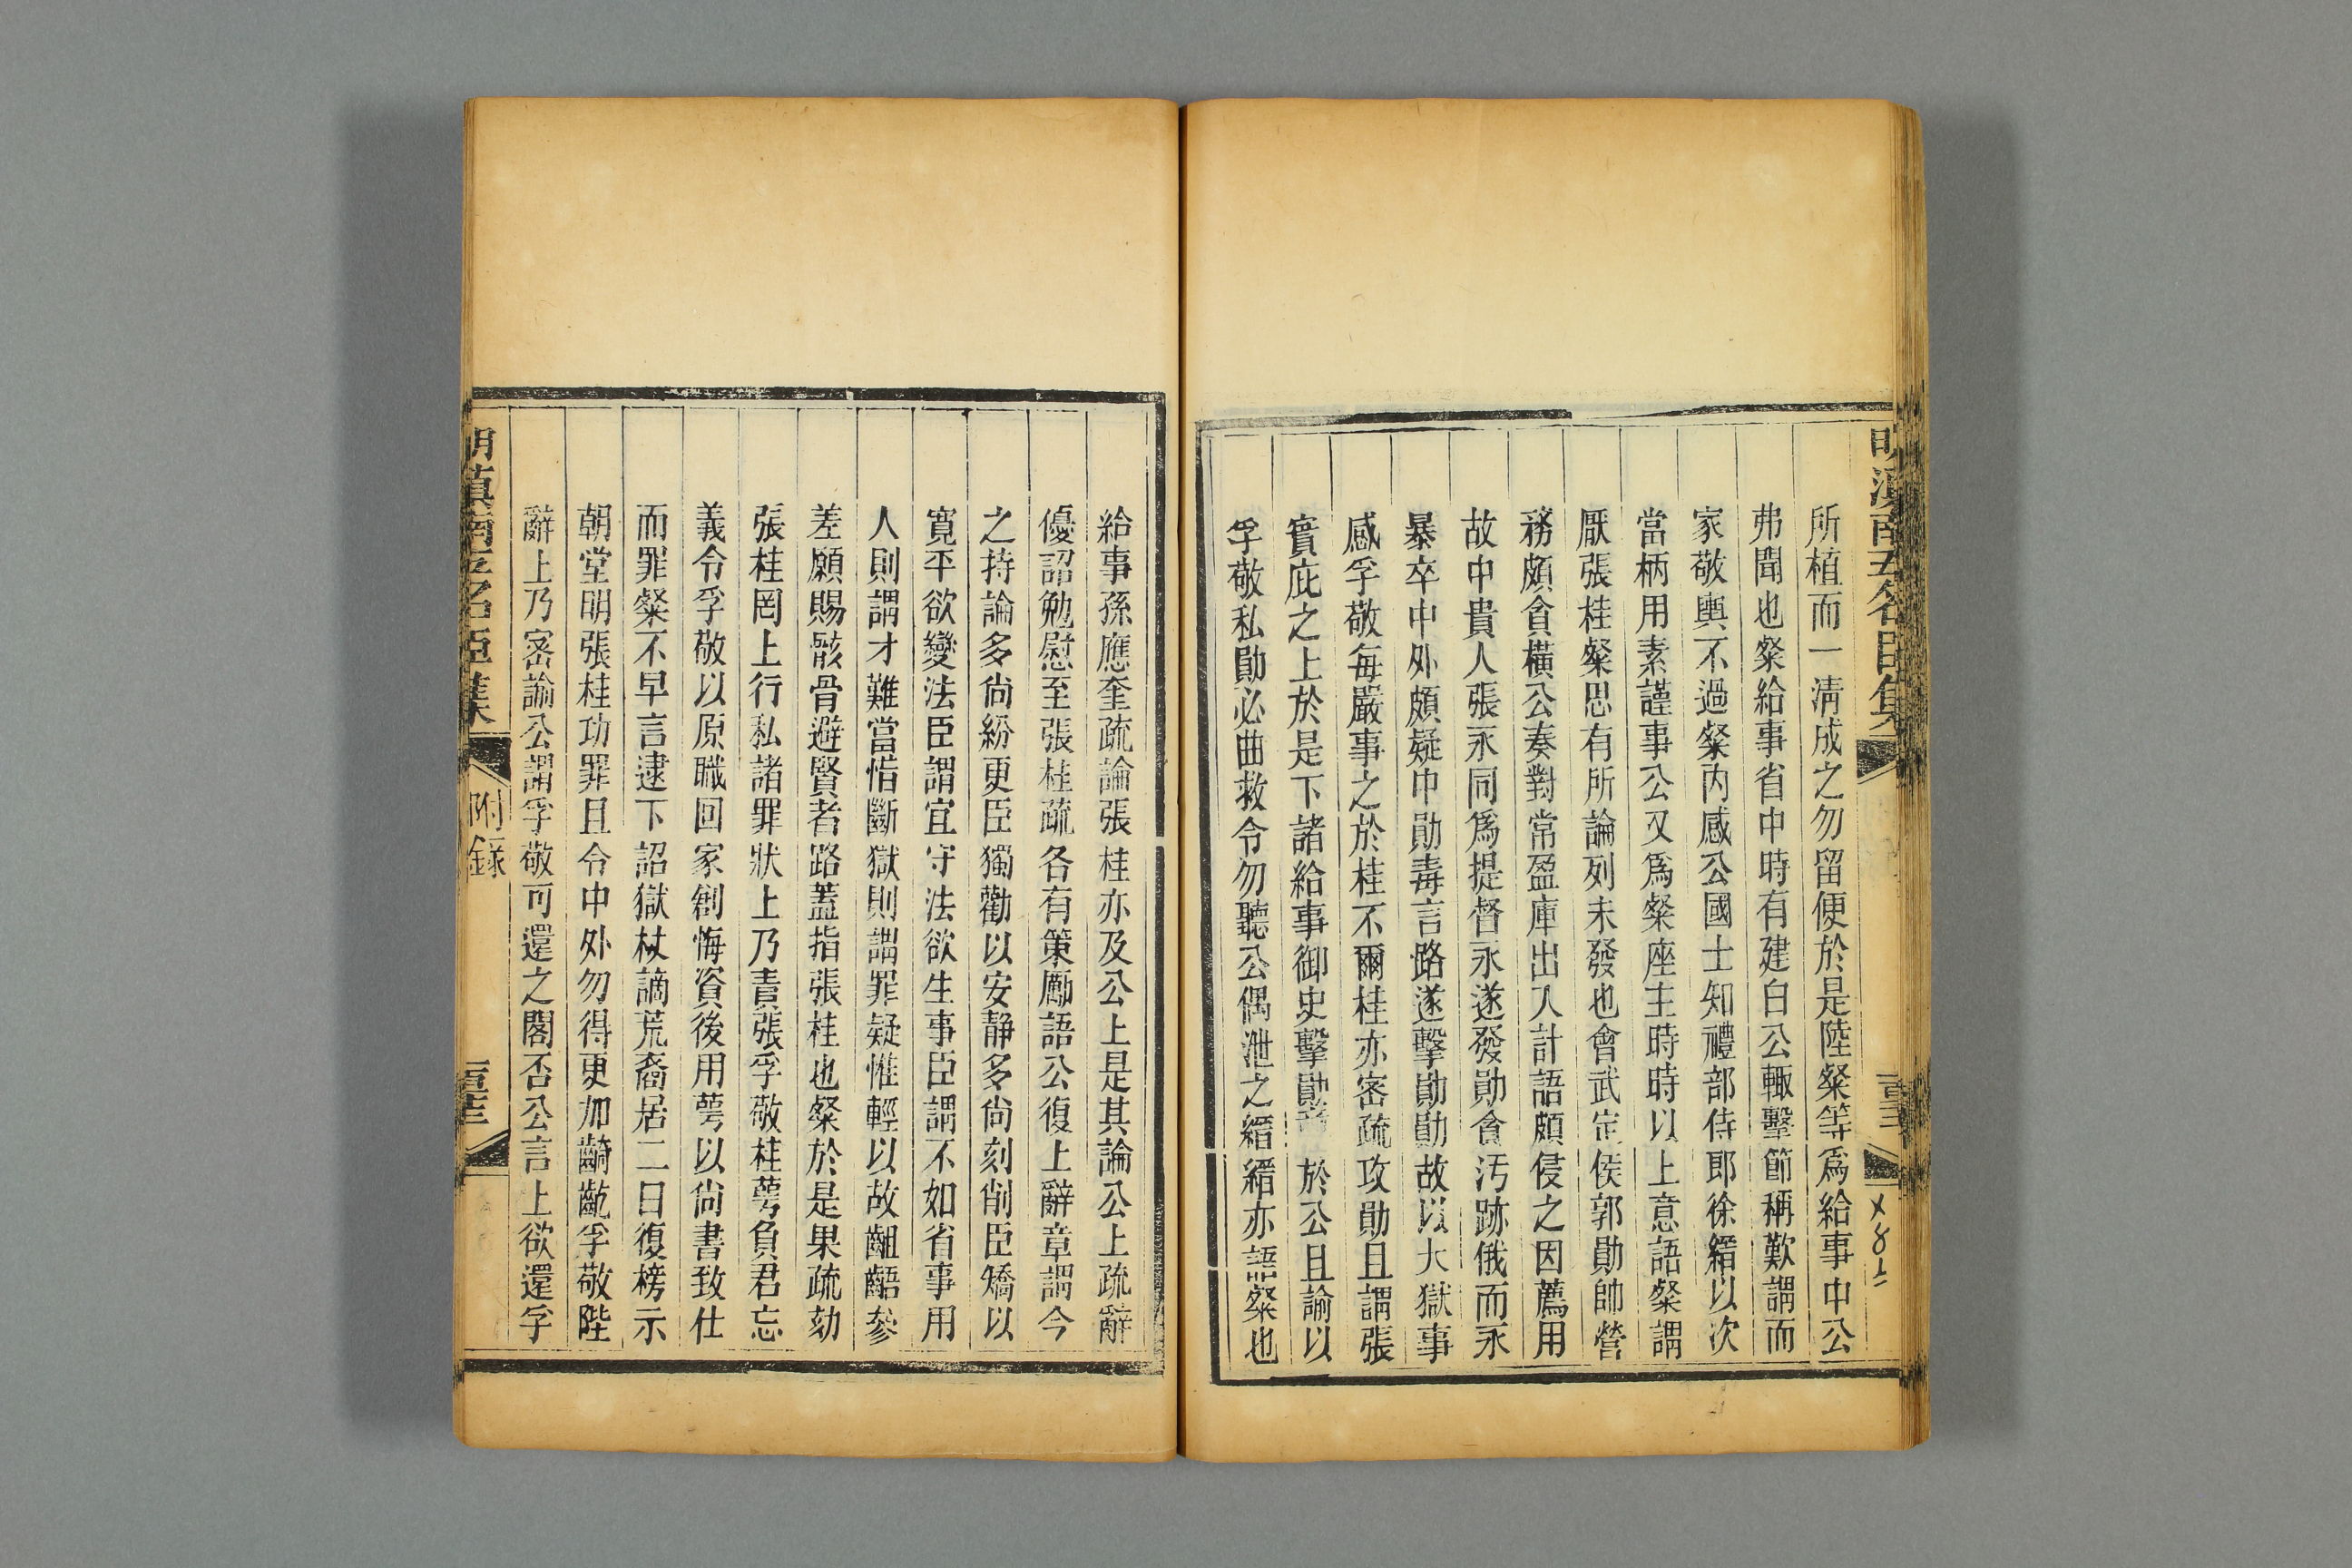 所植而一清成之勿留便於是陸粲等爲給事中公
弗聞也粲給事省中時有建白公輒擊節稱歎謂而
家敬輿不過粲内感公國士知禮部侍郎徐縉以次
當柄用素謹事公又爲粲座主時時以上意語粲謂
厭張桂粲思有所論列未發也會武定侯郭勛帥營
務頗貪橫公奏對常盈庫出入計語頗侵之因薦用
故中貴人張永同爲提督永遂發勛貪污跡俄而永
暴卒中外頗疑中勛毒言路遂擊勛勛故以大獄事
感孚敬每嚴事之於桂不爾桂亦密疏攻勛且謂張
實庇之上於是下諸給事御史擊勛於公且諭以
孚敬私勛必曲救令勿聽公偶泄之縉縉亦語粲也
給事孫應奎疏論張桂亦及公上是其論公上疏辭
優詔勉慰至張桂疏各有策勵語公復上辭章謂今
之持論多尚紛更臣獨勸以安靜多尚刻削臣矯以
寬平欲變法臣謂宜守法欲生事臣謂不如省事用
人則謂才難當惜斷獄則謂罪疑惟輕以故齟齬參
差願賜骸骨避賢者路蓋指張桂也粲於是果疏劾
張桂罔上行私諸罪狀上乃責張孚敬桂萼負君忘
義令孚敬以原職回家創悔資後用萼以尚書致仕
而罪粲不早言逮下詔獄杖謫荒裔居二日復榜示
朝堂明張桂功罪且令中外勿得更加齮齕孚敬陛
辭上乃密諭公謂孚敬可還之閣否公言上欲還孚
明滇南五名臣集
附錄